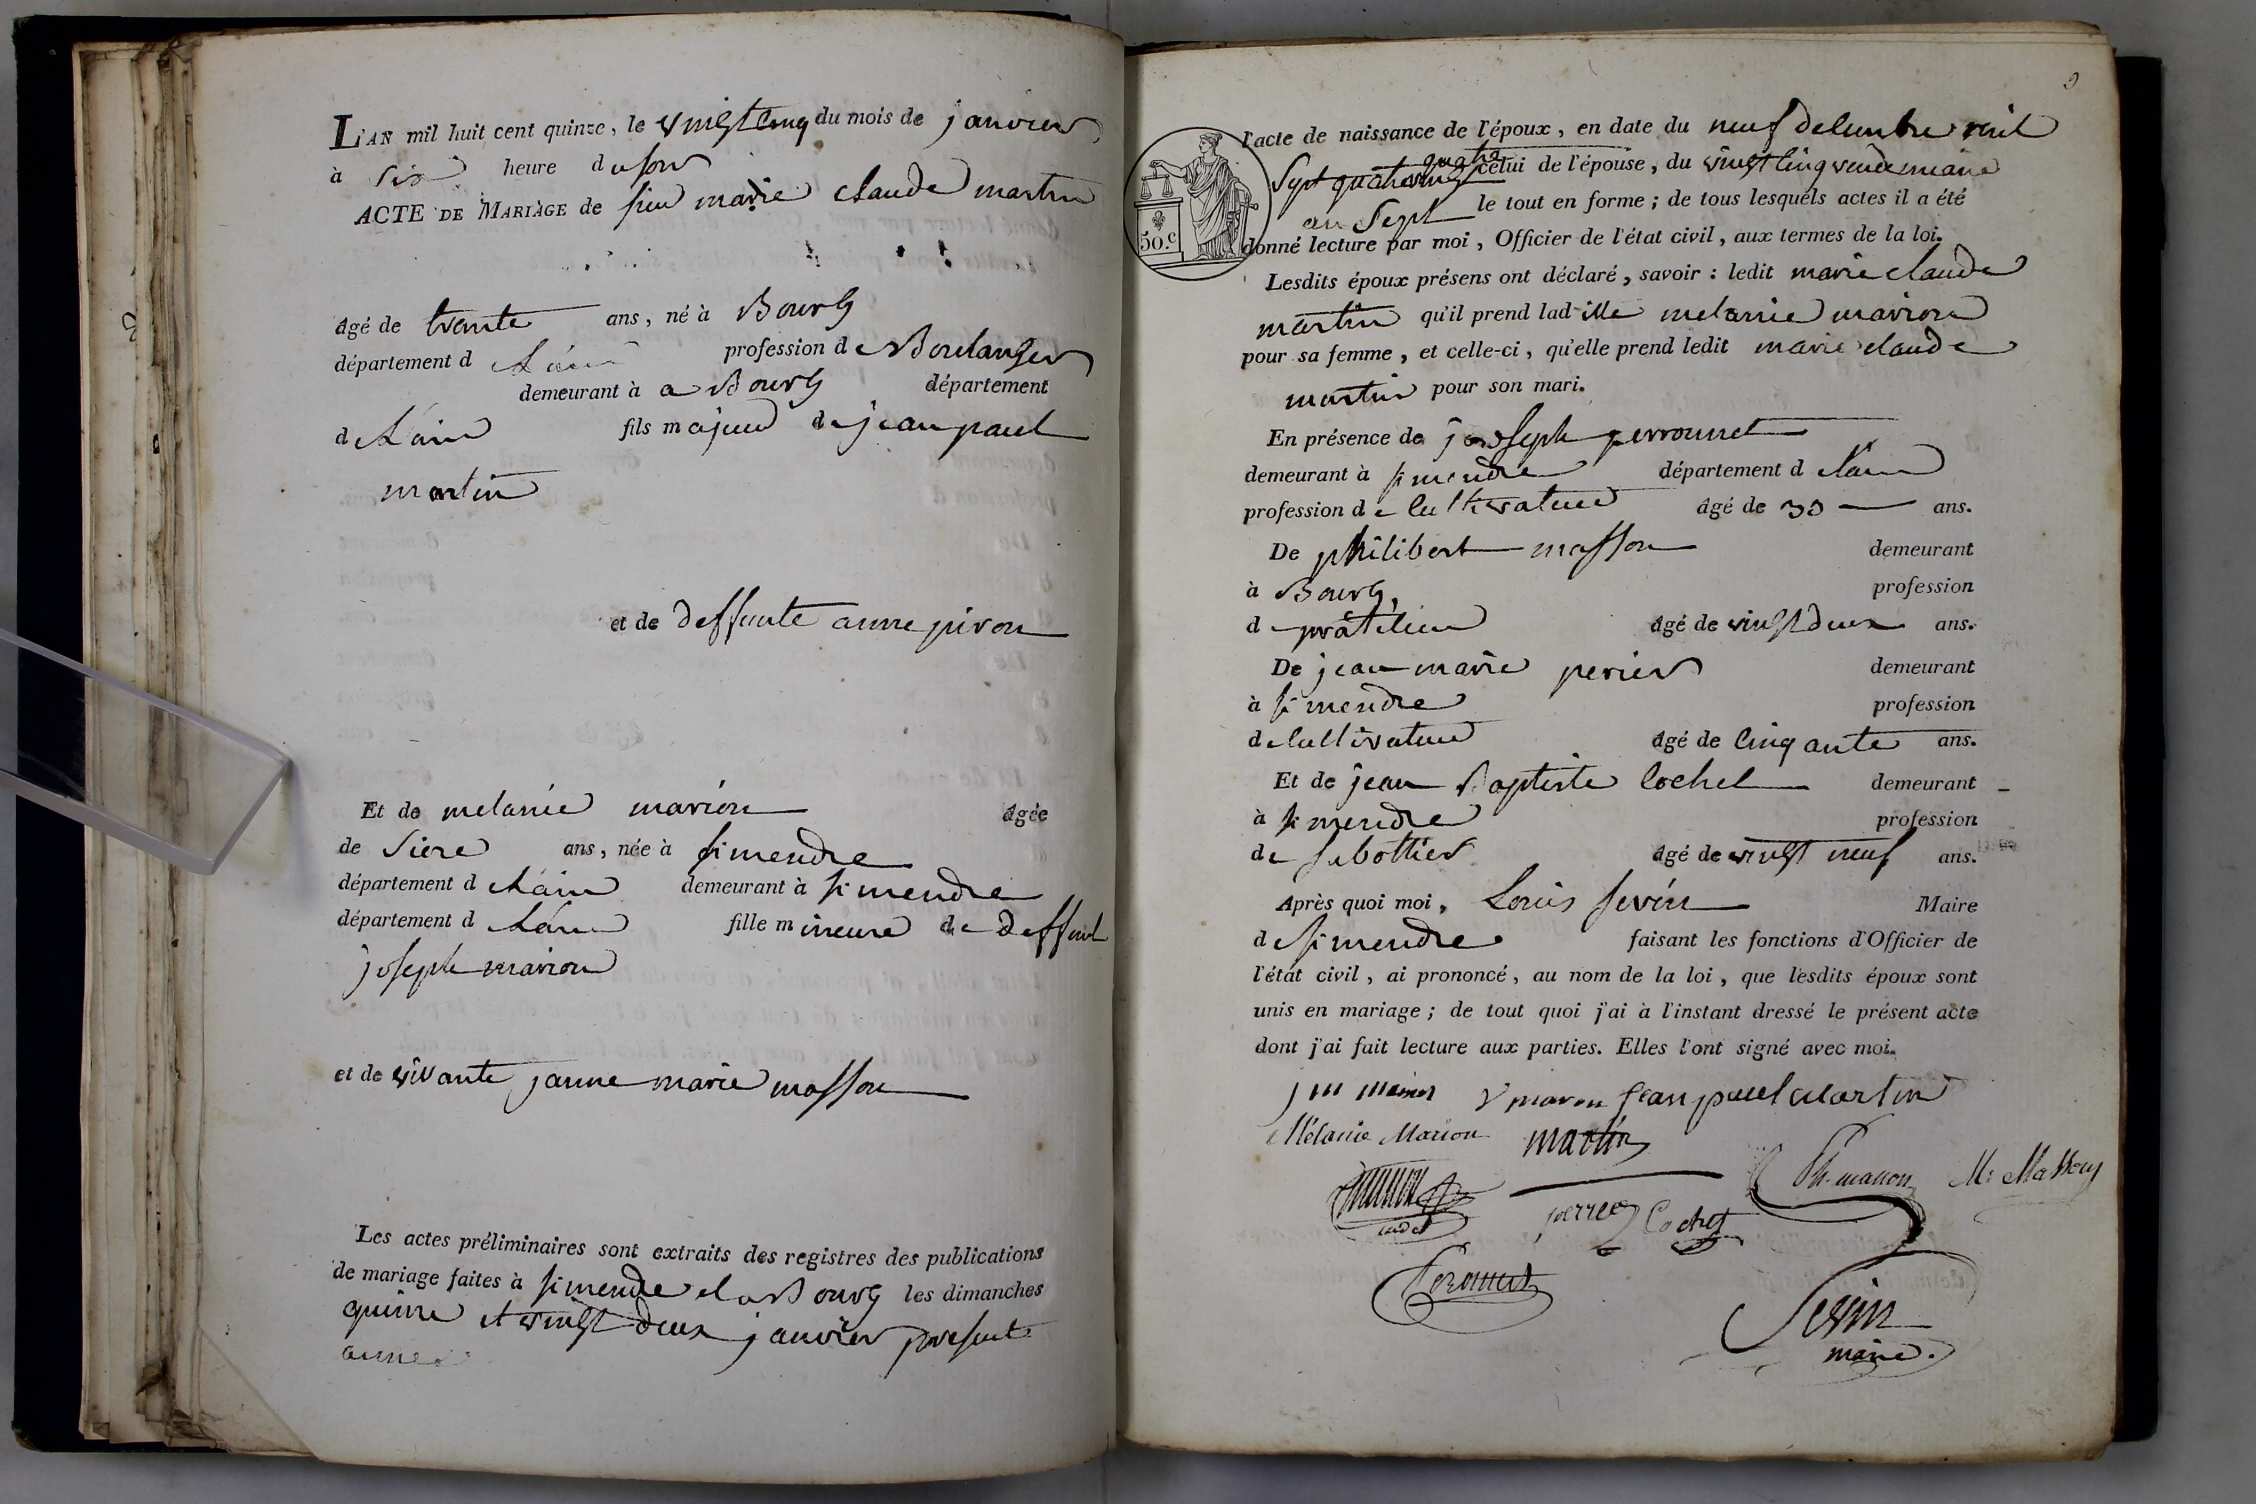 L'AN mil huit cent quinze, le vingt cinq du mois de janvier
à six heure du soir
ACTE DE MARIAGE de sieu marie claude martin
âgé de trante ans, né à Bourg
département d e L'ain profession d e Boulanger
demeurant à a Bourg département
d e L'ain fils majeur de jean paul
martin
et de deffunte anne piron
Et de melanie marion âgée
de sieze ans, née à simendre
département d e L'ain demeurant à simendre
département d e L'ain fille mineure de deffunt
joseph marion
et de vivante janne marie masson
Les actes préliminaires sont extraits des registres des publications
de mariage faites à simendre et a Bourg les dimanches
quinze et vingt deux janvier presente
annee
l'acte de naissance de l'époux, en date du neuf decembre mil
sept quatrevingt quatre celui de l'épouse, du vingt cinq vendemiaire
an sept le tout en forme; de tous lesquels actes il a été
50.c
donné lecture par moi, Officier de l'état civil, aux termes de la loi.
Lesdits époux présens ont déclaré, savoir: ledit marie claude
martin qu'il prend lad ille melanie marion
pour sa femme, et celle-ci, qu'elle prend ledit marie claude
martin pour son mari.
En présence de joseph perronnet
demeurant à simendre département d e l'ain
profession d e cultivateur âgé de ans.
De philibert masson demeurant
à Bourg, profession
d e praticien âgé de vingt deux ans.
De jean marie perier demeurant
à simendre profession
de cultivateur âgé de cinqante ans.
Et de jean Baptiste Cochet demeurant
à simendre profession
de sabottier âgé de vingt neuf ans.
Après quoi moi, Louis sevin Maire
d e simendre faisant les fonctions d'Officier de
l'état civil, ai prononcé, au nom de la loi, que lesdits époux sont
unis en mariage; de tout quoi j'ai à l'instant dressé le présent acte
dont j'ai fait lecture aux parties. Elles l'ont signé avec moi.
jean paul Martin
Mélanie Marion martin
Ph. masson
Cochet
Sevin
maire.